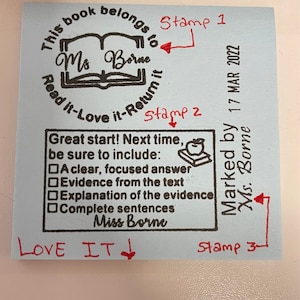 This book belongs to
Ms Borne
Read it-Love it-Return it
Stamp 1
Stamp 2
Great start! Next time,
be sure to include:
A clear, focused answer
Evidence from the text
Explanation of the evidence
Complete sentences
Miss Borne
17 MAR 2022
Marked by
Ms. Borne
Stamp 3
LOVE IT